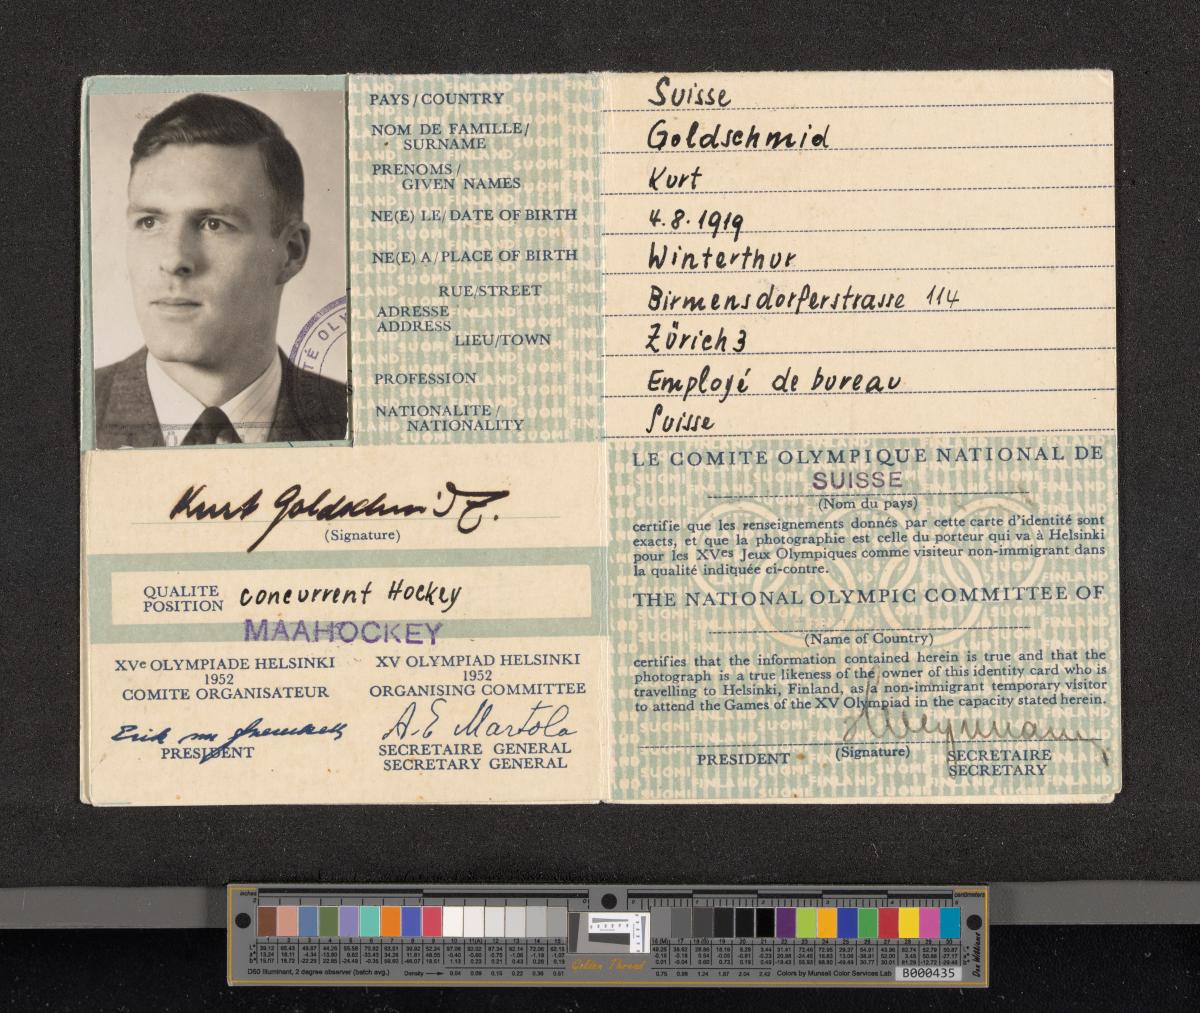 PAYS/COUNTRY Suisse
NOM DE FAMILLE/
SURNAME Goldschmid
PRENOMS/
GIVEN NAMES Kurt
NE(E) LE/DATE OF BIRTH 4.8.1919
NE(E) A/PLACE OF BIRTH Winterthur
RUE/STREET Birmensdorferstrasse 114
ADRESSE
ADDRESS
LIEU/TOWN Zürich 3
PROFESSION Employé de bureau
NATIONALITE/
NATIONALITY Suisse
TÉ OLY
Kurt Goldschmid
(Signature)
QUALITE
POSITION concurrent Hockey
MAAHOCKEY
XVe OLYMPIADE HELSINKI
1952
COMITE ORGANISATEUR
Erik von Frenckell
PRESIDENT
XV OLYMPIAD HELSINKI
1952
ORGANISING COMMITTEE
A.E Martola
SECRETAIRE GENERAL
SECRETARY GENERAL
LE COMITE OLYMPIQUE NATIONAL DE
SUISSE
(Nom du pays)
certifie que les renseignements donnés par cette carte d'identité sont
exacts, et que la photographie est celle du porteur qui va à Helsinki
pour les XVes Jeux Olympiques comme visiteur non-immigrant dans
la qualité indiquée ci-contre.
THE NATIONAL OLYMPIC COMMITTEE OF
(Name of Country)
certifies that the information contained herein is true and that the
photograph is a true likeness of the owner of this identity card who is
travelling to Helsinki, Finland, as a non-immigrant temporary visitor
to attend the Games of the XV Olympiad in the capacity stated herein.
PRESIDENT (Signature) SECRETAIRE
SECRETARY
inches
centimeters
D50 Illuminant, 2 degree observer (batch avg.)
Density
Golden Thread
Colors by Munsell Color Services Lab
B000435